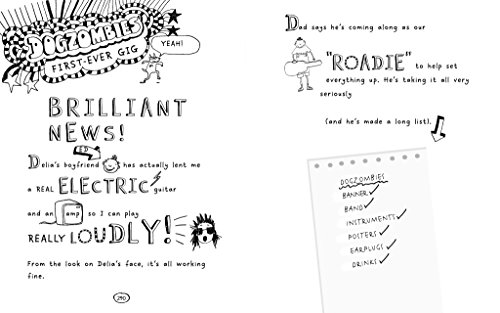 DOGZOMBIES
FIRST-EVER GIG
YEAH!
BRILLIANT
NEWS!
ED
Delia's boyfriend has actually lent me
a REAL ELECTRIC guitar
and an amp so I can play
REALLY LOUDLY!
From the look on Delia's face, it's all working
fine.
290
Dad says he's coming along as our
"ROADIE" to help set
everything up. He's taking it all very
seriously
(and he's made a long list).
DOGZOMBIES
BANNER ✓
BAND ✓
INSTRUMENTS ✓
POSTERS ✓
EARPLUGS ✓
DRINKS ✓